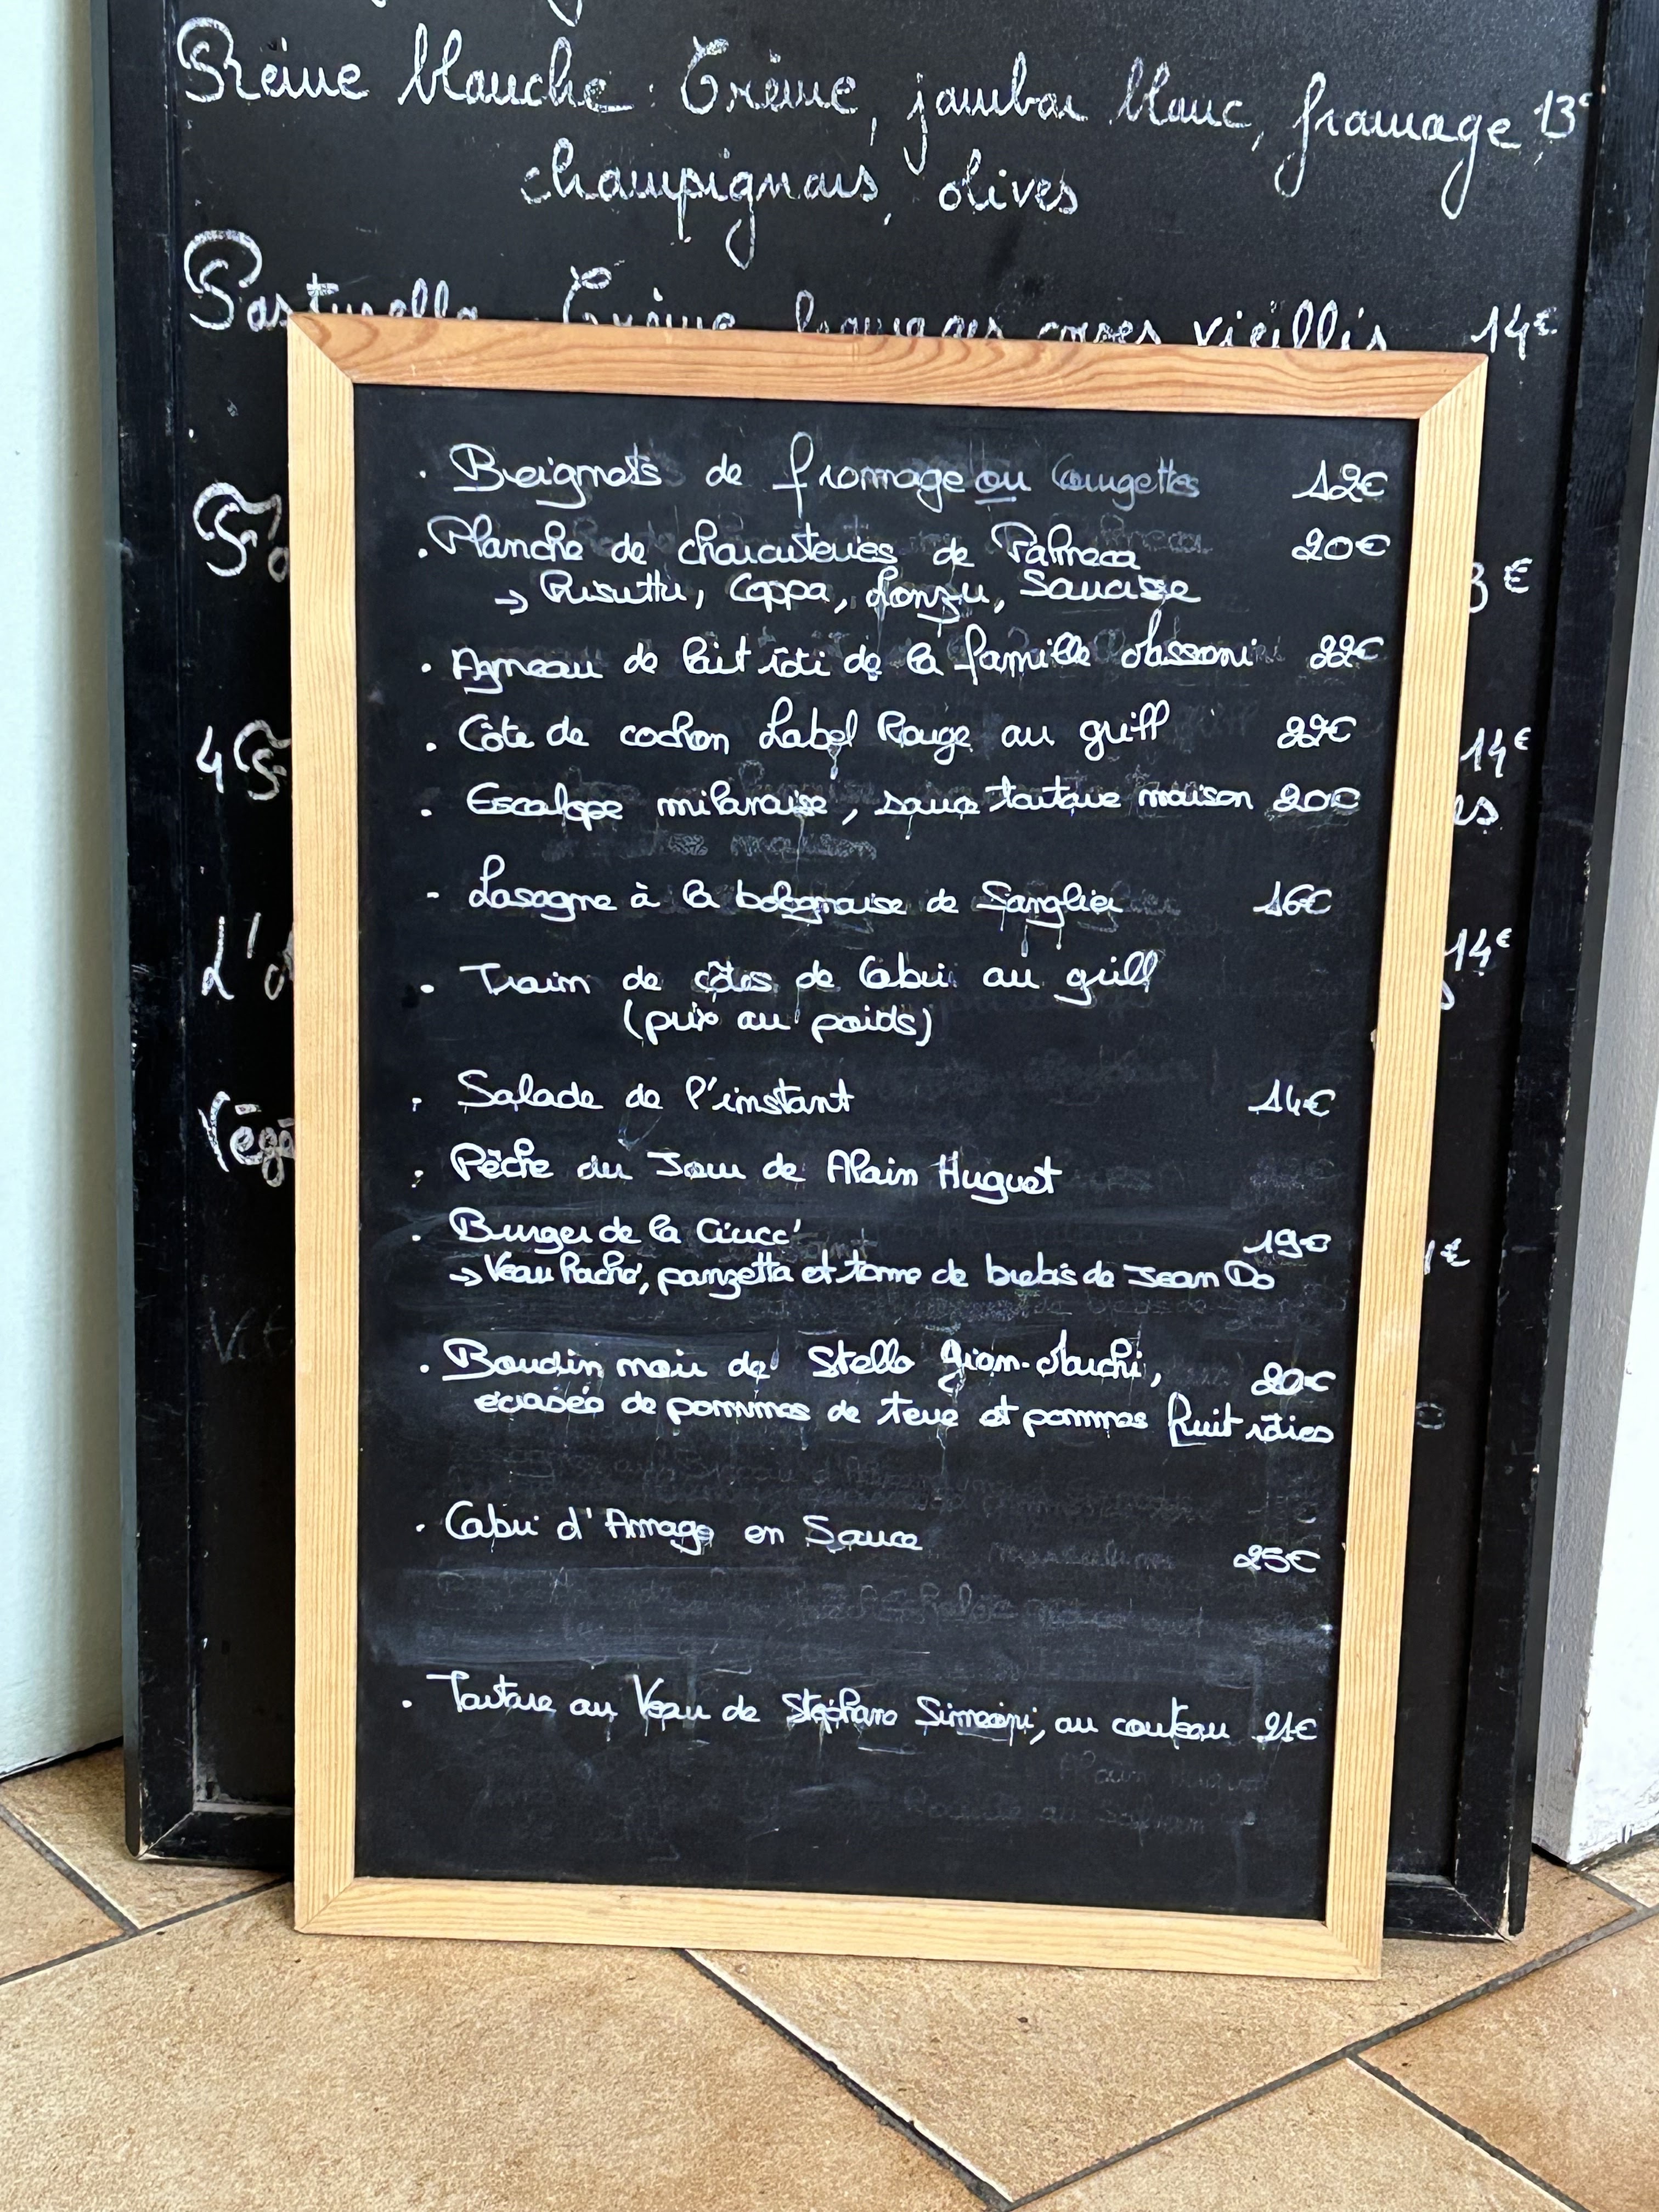 Reine blanche : Crème, jambon blanc, fromage 13€
champignons, olives
Pasturella Crème fromages corses vieillis 14€
. Beignets de fromage ou Courgettes 12€
. Planche de charcuteries de Palneca 20€
→ Prisuttu, Coppa, Lonzu, Saucisse
. Agneau de lait rôti de la famille 22€
. Côte de cochon Label Rouge au grill 22€
. Escalope milanaise, sauce tartare maison 20€
- Lasagne à la bolognaise de Sanglier 16€
. Train de côtes de Cabri au grill
(prix au poids)
. Salade de l'instant 14€
. Pêche du Jour de Alain Huguet
. Burger de la Ciucc' 19€
→ Veau haché, panzetta et tomme de brebis de Jean Do
. Boudin noir de Stella 20€
écrasée de pommes de terre et pommes fruit rôties
. Cabri d'Amage en Sauce 25€
. Tartare au Veau de Stéphane Simeoni, au couteau 21€
4
14€
L'
14€